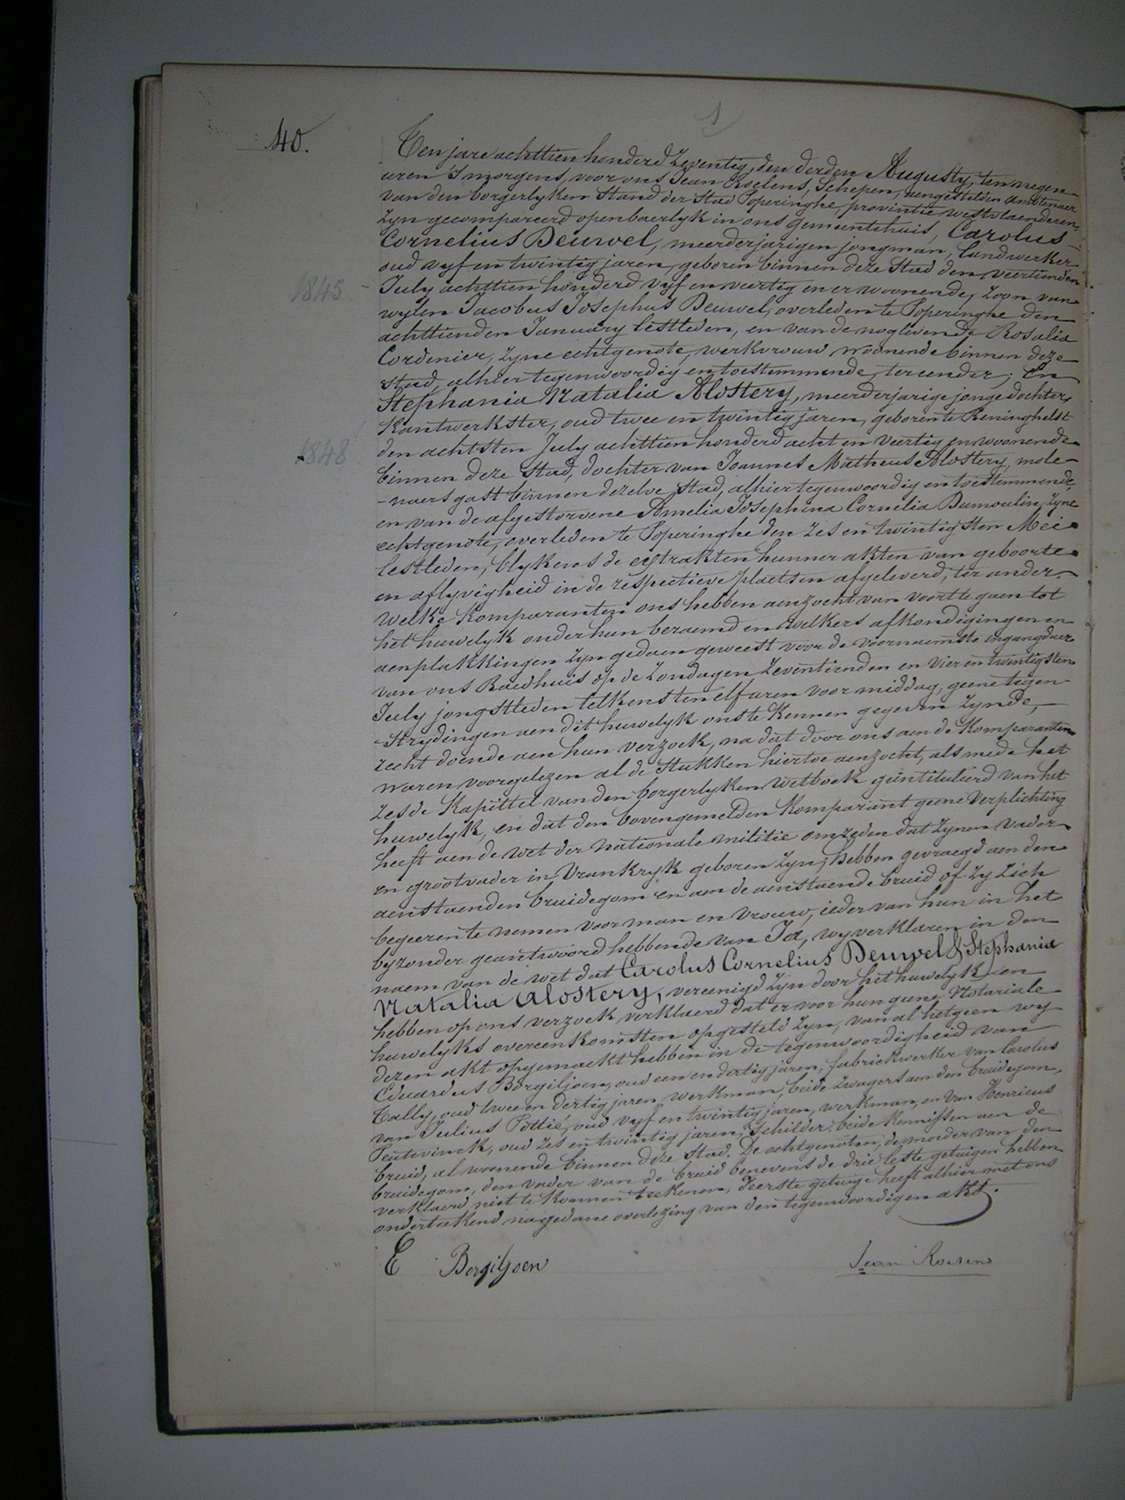 1
40.
Ten jare achttien honderd Zeventig, den derden Augusty, ten negen
uren 's morgens, voor ons Jean Roelens, Schepen, aengestelden ambtenaer
van den borgerlyken Stand der Stad Poperinghe, provintie westvlaenderen,
Zyn gecompareerd openbaerlyk in ons gemeentehuis, Carolus
Cornelius Deuwel, meerderjarigen jongman, landwerker
oud vyf en twintig jaren, geboren binnen deze Stad den veertienden
1845 July achttien honderd vyf en veertig en er woonende, Zoon van
wylen Jacobus Josephus Deuwel, overleden te Poperinghe den
achttienden January lestleden, en van de nog levende Rosalia
Cordenier, Zyne echtgenote, werkvrouw, woonende binnen deze
stad, alhier tegenwoordig en toestemmende, ter eender; En
Stephania Natalia Alostery, meerderjarige jonge dochter,
Kantwerkster, oud twee en twintig jaren, geboren te Reninghelst
1848 den achtsten July achttien honderd acht en veertig en woonende
binnen deze Stad, dochter van Joannes Matheus Alostery, mole-
-naers gast binnen dezelve stad, alhier tegenwoordig en toestemmende,
en van de afgestorvene Amelia Josephina Cornelia Dumoulin, Zyne
echtgenote, overleden te Poperinghe den Zes en twintigsten Mei
lestleden, blykens de extrakten hunner akten van geboorte
en aflyvigheid in de respectieve plaetsen afgeleverd, ter ander.
Welke Komparanten ons hebben aenzocht van voort te gaen tot
het huwelyk onder hun beraemd en welkers afkondigingen en
aenplakkingen Zyn gedaen geweest voor de voornaemste ingangdeur
van ons Raedhuis op de Zondagen Zeventienden en vier en twintigsten
July jongstleden telkens ten elf uren voor middag, geene tegen-
-Strydingen aen dit huwelyk ons te Kennen gegeven Zynde,
recht doende aen hun verzoek, na dat door ons aen de Komparanten
waren voorgelezen al de Stukken hiertoe aenzocht, als mede het
Zesde Kapittel van den borgerlyken wetboek geïntituleerd van het
huwelyk, en dat den bovengemelden Komparant geene verplichting
heeft aen de wet der nationale militie omreden dat Zynen vader
en grootvader in Vrankryk geboren Zyn, hebben gevraegd aen den
aenstaenden bruidegom en aen de aenstaende bruid of Zy Zich
begeeren te nemen voor man en vrouw, ieder van hun in het
byzonder geantwoord hebbende van Ja, wy verklaren in den
naem van de wet dat Carolus Cornelius Deuwel & Stephania
Natalia Alostery, vereenigd Zyn door het huwelyk en
hebben op ons verzoek verklaerd dat er voor hun geene Notariale
huwelyks overeenkomsten opgesteld Zyn, van al hetgeen wy
dezen akt opgemaekt hebben in de tegenwoordigheid van
Eduardus Borgiljoen, oud een en dertig jaren, fabriekwerker van Carolus
Cally, oud twee en dertig jaren, werkman, beide Zwagers aen den bruidegom,
van Julius Pottié, oud vyf en twintig jaren, werkman, en van Henricus
oud Zes en twintig jaren, Schilder, beide Kennissen aen de
bruid, al wonende binnen deze Stad. De echtgenoten, de moeder van den
bruidegom, den vader van de bruid benevens de drie leste getuigen hebben
verklaerd niet te konnen teekenen, d'eerste getuige heeft alhier met ons
onderteekend na gedane overlezing van den tegenwoordigen akt.
E Borgiljoen Jean Roelens